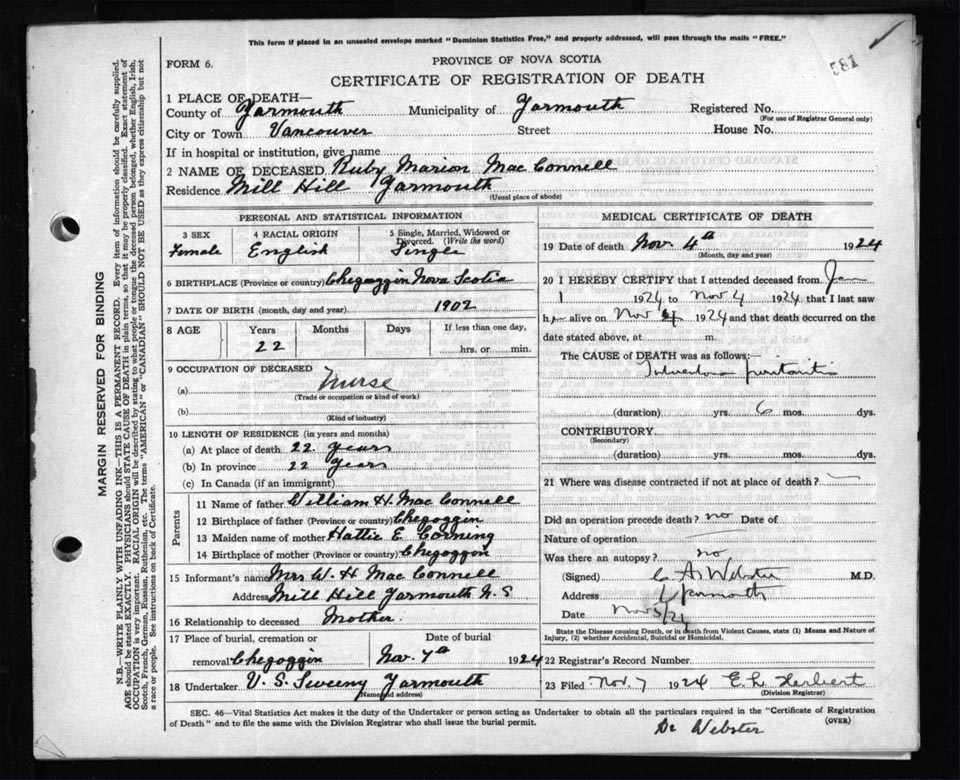 This form if placed in an unsealed envelope marked "Dominion Statistics Free," and properly addressed, will pass through the mails "FREE."
581
FORM 6.
PROVINCE OF NOVA SCOTIA
CERTIFICATE OF REGISTRATION OF DEATH
1 PLACE OF DEATH—
County of Yarmouth Municipality of Yarmouth Registered No.
(For use of Registrar General only)
City or Town Vancouver Street House No.
If in hospital or institution, give name
2 NAME OF DECEASED Ruby Marion MacConnell
Residence Mill Hill Yarmouth
(Usual place of abode)
PERSONAL AND STATISTICAL INFORMATION
3 SEX 4 RACIAL ORIGIN 5 Single, Married, Widowed or Divorced. (Write the word)
Female English Single
6 BIRTHPLACE (Province or country) Chegoggin Nova Scotia
7 DATE OF BIRTH (month, day and year) 1902
8 AGE Years Months Days If less than one day,
22 hrs. or min.
9 OCCUPATION OF DECEASED
(a) Nurse
(Trade or occupation or kind of work)
(b)
(Kind of industry)
10 LENGTH OF RESIDENCE (in years and months)
(a) At place of death 22 years
(b) In province 22 years
(c) In Canada (if an immigrant)
Parents
11 Name of father William H. MacConnell
12 Birthplace of father (Province or country) Chegoggin
13 Maiden name of mother Hattie E. Corning
14 Birthplace of mother (Province or country) Chegoggin
15 Informant's name Mrs W. H MacConnell
Address Mill Hill Yarmouth N.S
16 Relationship to deceased Mother
17 Place of burial, cremation or Date of burial
removal Chegoggin Nov. 7th 1924
18 Undertaker V. S. Sweeny Yarmouth
(Name and address)
MEDICAL CERTIFICATE OF DEATH
19 Date of death Nov. 4th 1924
(Month, day and year)
20 I HEREBY CERTIFY that I attended deceased from Jan
1 1924 to Nov 4 1924 that I last saw
her alive on Nov 4 1924 and that death occurred on the
date stated above, at m.
The CAUSE of DEATH was as follows:—
(duration) yrs. 6 mos. dys.
CONTRIBUTORY
(Secondary)
(duration) yrs. mos. dys.
21 Where was disease contracted if not at place of death?
Did an operation precede death? no Date of
Nature of operation
Was there an autopsy? no
(Signed) C A Webster M.D.
Address Yarmouth
Date Nov 5/24
State the Disease causing Death, or in death from Violent Causes, state (1) Means and Nature of
Injury, (2) whether Accidental, Suicidal or Homicidal.
22 Registrar's Record Number
23 Filed Nov. 7 1924 E L Herbert
(Division Registrar)
SEC. 46—Vital Statistics Act makes it the duty of the Undertaker or person acting as Undertaker to obtain all the particulars required in the "Certificate of Registration
of Death" and to file the same with the Division Registrar who shall issue the burial permit. (OVER)
Dr Webster
MARGIN RESERVED FOR BINDING
N.B.—WRITE PLAINLY WITH UNFADING INK—THIS IS A PERMANENT RECORD. Every item of information should be carefully supplied.
AGE should be stated EXACTLY. PHYSICIANS should STATE CAUSE OF DEATH in plain terms, so that it may be properly classified. Exact statement of
OCCUPATION is very important. RACIAL ORIGIN will be described by stating to what people or tongue the deceased person belonged, whether English, Irish,
Scotch, French, German, Russian, Ruthenian, etc. The terms "AMERICAN" or "CANADIAN" SHOULD NOT BE USED as they express citizenship but not
a race or people. See instructions on back of Certificate.